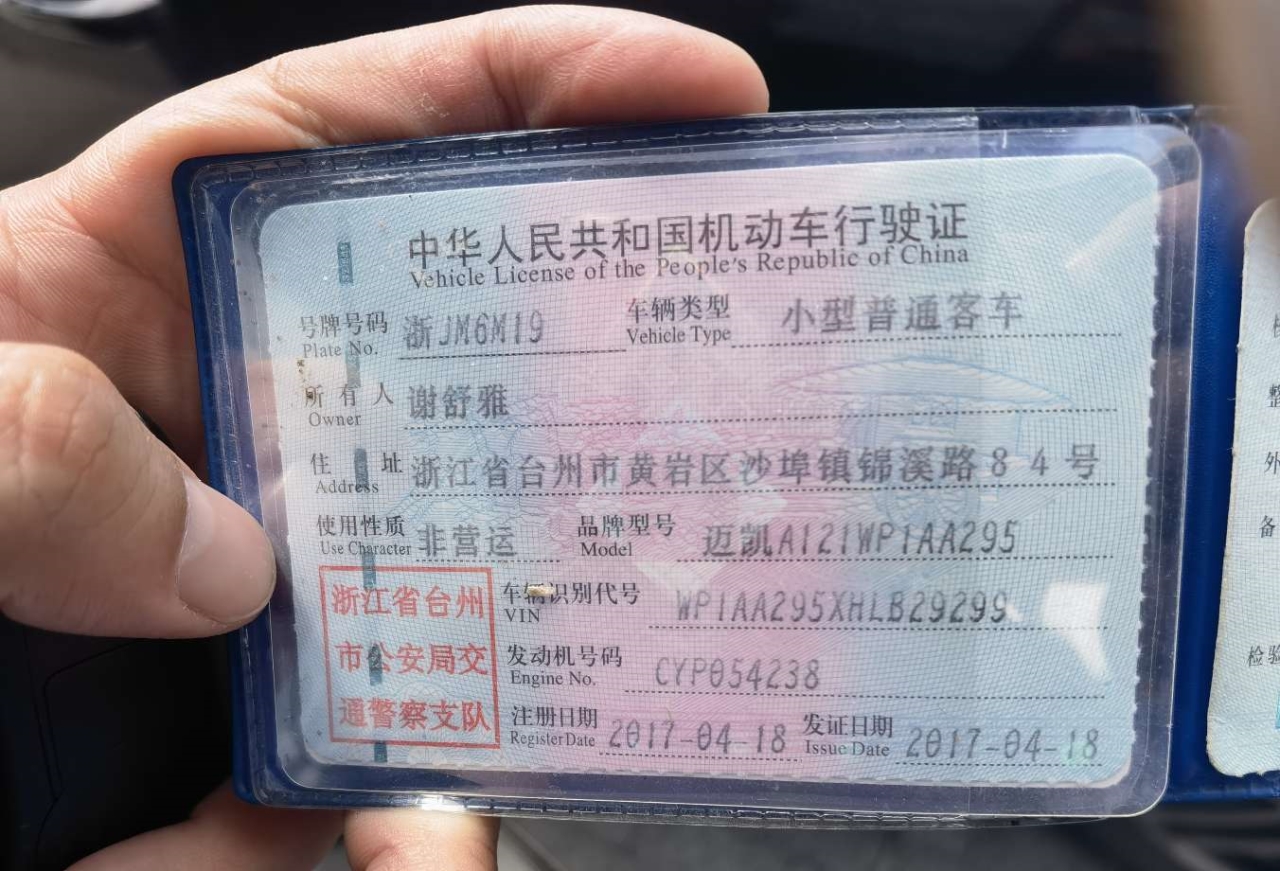 中华人民共和国机动车行驶证
Vehicle License of the People's Republic of China
号牌号码 浙JM6M19 车辆类型 小型普通客车
Plate No. Vehicle Type
所有人 谢舒雅
Owner
住址 浙江省台州市黄岩区沙埠镇锦溪路84号
Address
使用性质 非营运 品牌型号 迈凯A121WP1AA295
Use Character Model
浙江省台州
市公安局交
通警察支队
车辆识别代号 WP1AA295XHLB29299
VIN
发动机号码 CYP054238
Engine No.
注册日期 2017-04-18 发证日期 2017-04-18
Register Date Issue Date
整
外
备
检验